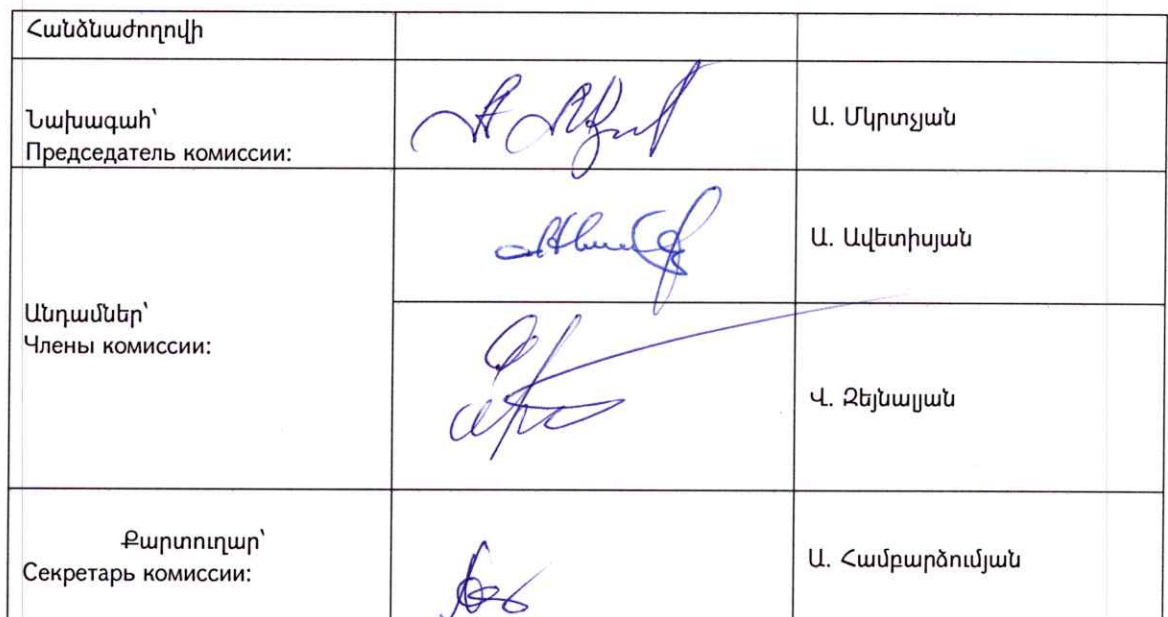 Հանձնաժողովի
Նախագահ՝
Председатель комиссии:
Ա. Մկրտչյան
Ա. Ավետիսյան
Անդամներ՝
Члены комиссии:
Վ. Զեյնալյան
Քարտուղար՝
Секретарь комиссии:
Ա. Համբարձումյան